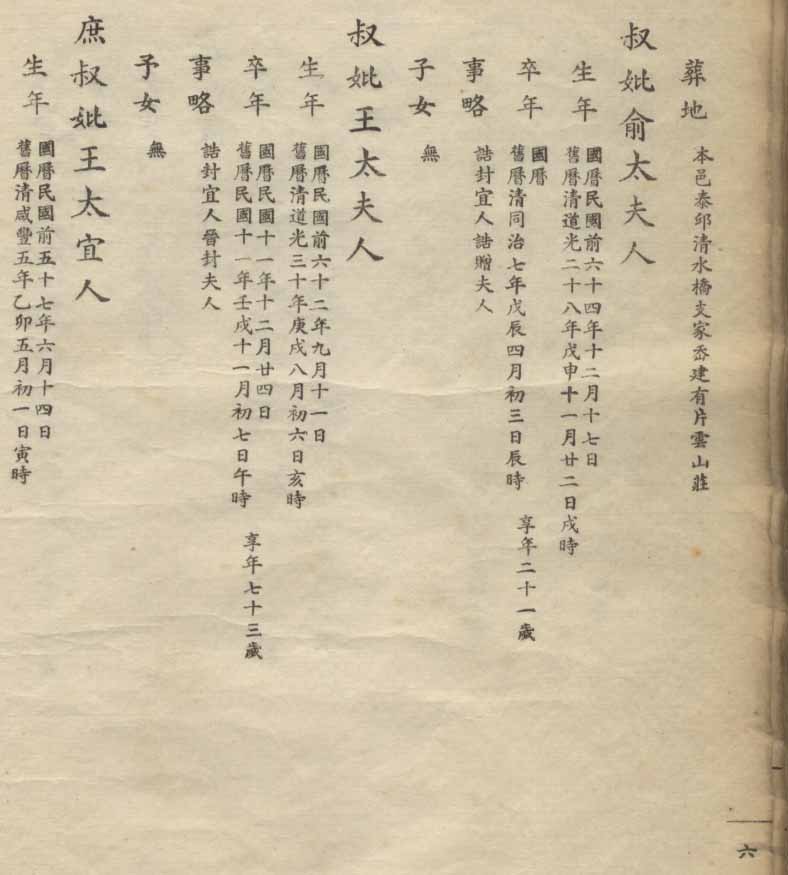 葬地 本邑泰邱清水橋支家岙建有片雲山莊
叔妣俞太夫人
生年 國曆民國前六十四年十二月十七日
舊曆清道光二十八年戊申十一月廿二日戌時
卒年 國曆
舊曆清同治七年戊辰四月初三日辰時 享年二十一歲
事略 誥封宜人誥贈夫人
子女 無
叔妣王太夫人
生年 國曆民國前六十二年九月十一日
舊曆清道光三十年庚戌八月初六日亥時
卒年 國曆民國十一年十二月廿四日
舊曆民國十一年壬戌十一月初七日午時 享年七十三歲
事略 誥封宜人晉封夫人
子女 無
庶叔妣王太宜人
生年 國曆民國前五十七年六月十四日
舊曆清咸豐五年乙卯五月初一日寅時
六